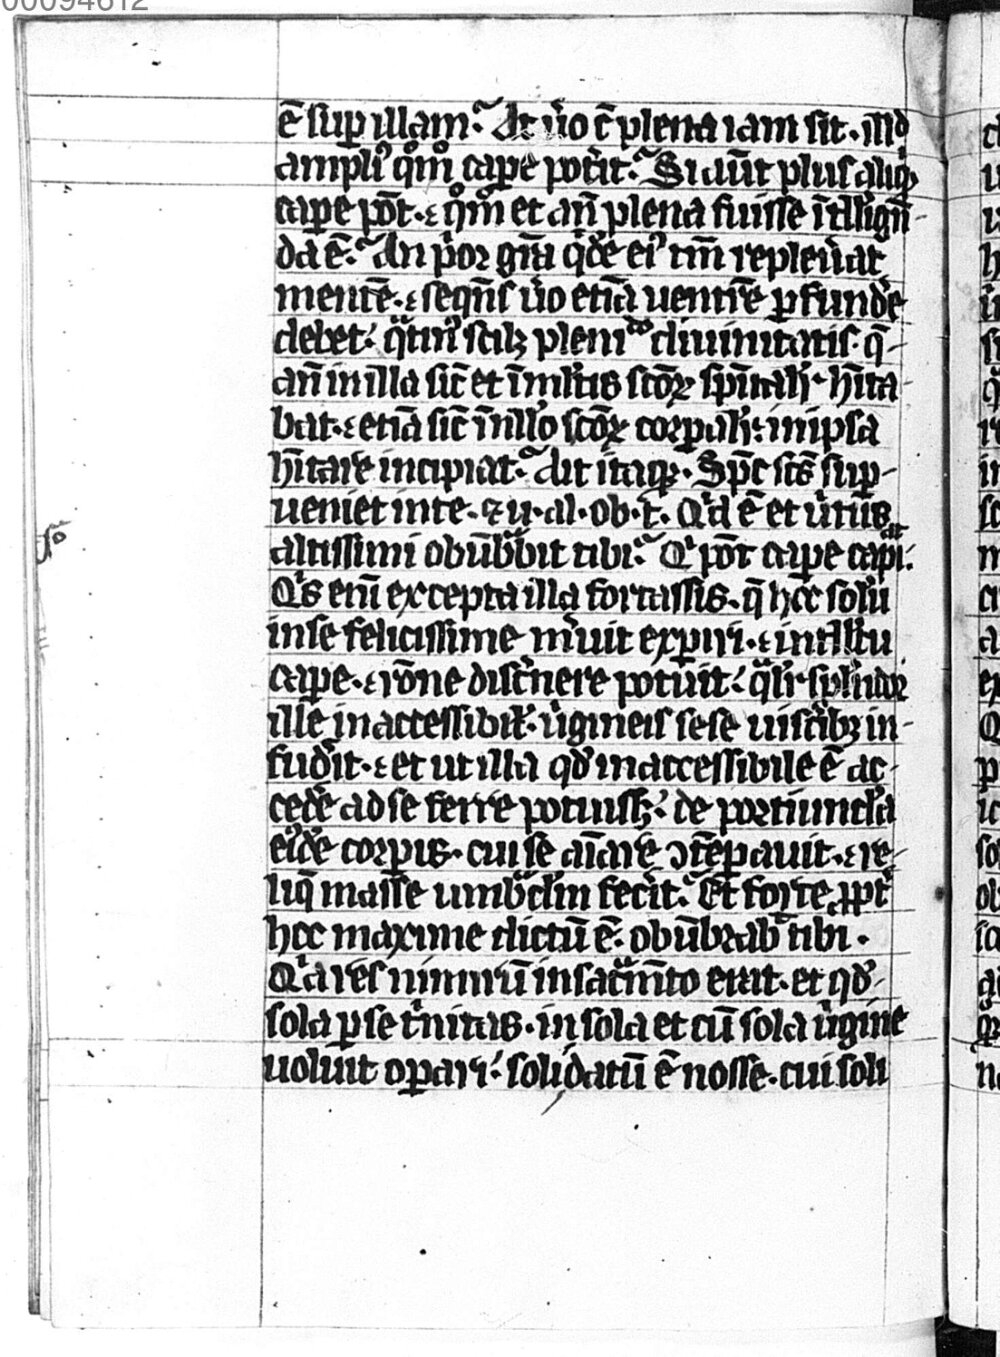 00094612
ē sup illam. At ůo c̄ plena iam sit. illđ
ampli᷒ qͦm̊ cape potit. Si aūt plus aliq
cape pōt. ⁊ qͦm̊ et añ plena fuisse ītlligñ-
da ē. An p̍or gr̄a q̍de ei᷒ tm̄ repleůat
mentē. ⁊ seqn̄s ůo etiā uentrē ꝑfunde
debet. qᷓtin᷒ scilꝫ pleni᷒do diuinitatis. q̄-
añ in illa sic̄ et ī ml̄tis sc̄oꝝ sp̄inalit᷒. hīta-
bat. ⁊ etiā sic̄ ī nll̄o sc̄oꝝ corꝑalit᷒. in ipsa
hītare incipiat. Ait itaqꝫ. Sp̄c sc̄s sup-
ueniet in te. ⁊ u. al. ob. t. Qͥd ē et ůtus
altissimi obūbᷓbit tibi. Qͥ pōt cape capi
at.
Qͥs enī excepta illa fortassis. q̄ hoc solū
in se felicissime m̍uit exꝑiri. ⁊ intll̄tu
cape. ⁊ rōne discn̍ere potuit. qᷓlit᷒ splendor
ille inaccessibil᷒. ůgineis sese uiscibꝫ in-
fudit. ⁊ et ut illa qđ inaccessibile ē ac-
cede ad se ferre potuissꝫ. de portiuncl̄a
ei᷒de corꝑis. cui se aīare ↄtēꝑauit. ⁊ re-
liq̄ masse umbᷓcl̄m fecit. Et forte ꝓpt̍
hoc maxime dictū ē. obūbrab᷒ tibi.
Qͥa res nimirū in sacᷓm̄to erat. et qđ-
sola ꝑ se tͥnitas. in sola et cū sola ůgine
uoluit oꝑari. soli datū ē nosse. cui soli